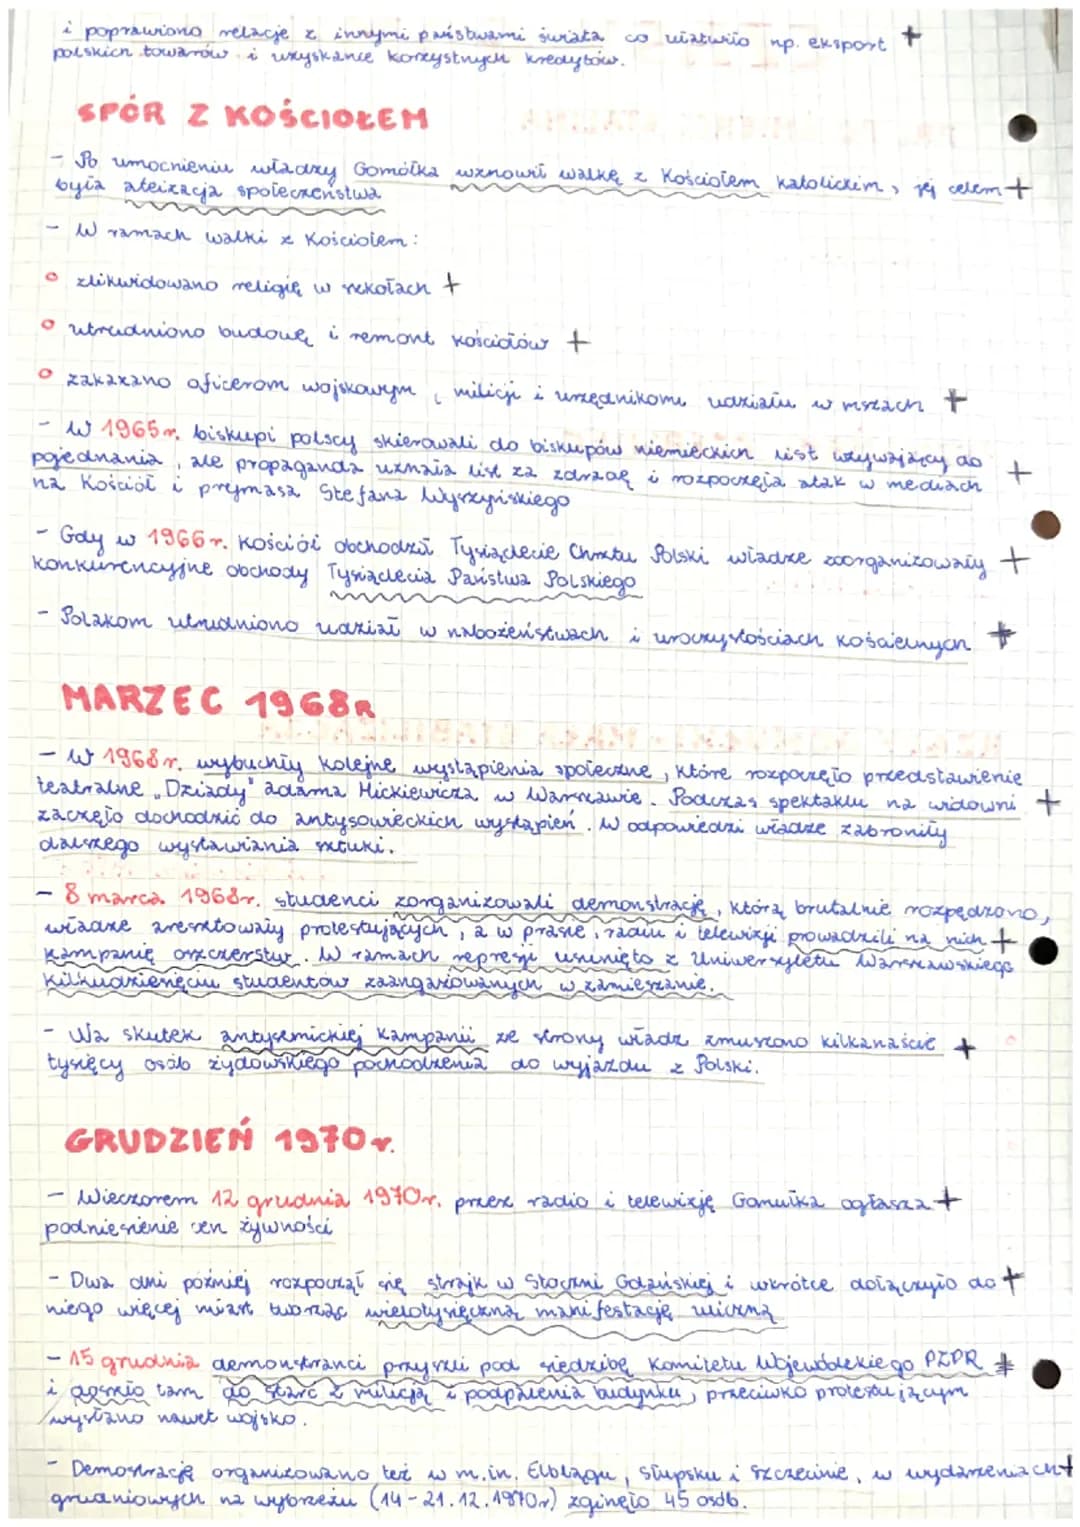 i poprawiono relacje z innymi państwami świata co ułatwiło np. eksport +
polskich towarów i uzyskanie korzystnych kredytów.
SPÓR Z KOŚCIOŁEM
- Po umocnieniu władzy Gomółka wznowił walkę z Kościołem katolickim, jej celem +
była ateizacja społeczeństwa
- W ramach walki z Kościołem:
o zlikwidowano religię w szkołach +
o utrudniono budowę i remont kościołów +
o zakazano oficerom wojskowym, milicji i urzędnikom udziału w mszach +
- W 1965r. biskupi polscy skierowali do biskupów niemieckich list wzywający do
pojednania, ale propaganda uznała list za zdradę i rozpoczęła atak w mediach +
na Kościół i prymasa Stefana Wyszyńskiego
- Gdy w 1966r. Kościół obchodził Tysiąclecie Chrztu Polski władze zoorganizowały +
konkurencyjne obchody Tysiąclecia Państwa Polskiego
- Polakom utrudniono udział w nabożeństwach i uroczystościach kościelnych +
MARZEC 1968R
- W 1968r. wybuchły kolejne wystąpienia społeczne, które rozpoczęło przedstawienie
teatralne „Dziady" adama Mickiewicza w Warszawie. Podczas spektaklu na widowni +
zaczęło dochodzić do antysowieckich wystąpień. W odpowiedzi władze zabroniły
dalszego wystawiania sztuki.
- 8 marca 1968r. studenci zorganizowali demonstrację, którą brutalnie rozpędzono,
władze aresztowały protestujących, a w prasie, radiu i telewizji prowadzili na nich +
kampanię oszczerstw. W ramach represji usunięto z Uniwersytetu Warszawskiego
kilkudziesięciu studentów zaangażowanych w zamieszanie.
- Na skutek antysemickiej kampanii ze strony władz zmuszono kilkanaście +
tysięcy osób żydowskiego pochodzenia do wyjazdu z Polski.
GRUDZIEŃ 1970r.
- Wieczorem 12 grudnia 1970r. przez radio i telewizję Gomułka ogłasza +
podniesienie cen żywności
- Dwa dni później rozpoczął się strajk w Stoczni Gdańskiej i wkrótce dołączyło do +
niego więcej miast tworząc wielotysięczną manifestację uliczną
- 15 grudnia demonstranci przyszli pod siedzibę Komitetu Wojewódzkiego PZPR +
i doszło tam do starć z milicją i podpalenia budynku, przeciwko protestującym
wysłano nawet wojsko.
- Demostrację organizowano też w m.in. Elblągu, Słupsku i Szczecinie, w wydarzeniach +
grudniowych na wybrzeżu (14-21.12.1970r) zginęło 45 osób.